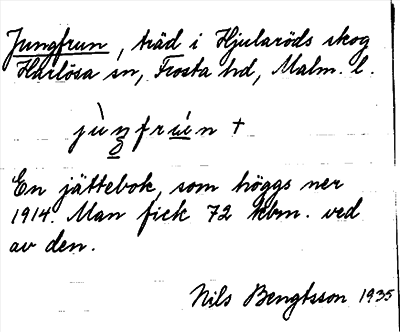 Jungfrun, träd i Hjularöds skog
Harlösa sn, Frosta hd, Malm. l.
jùŋfrún +
En jättebok, som höggs ner
1914. Man fick 72 kbm. ved
av den.
Nils Bengtsson 1935